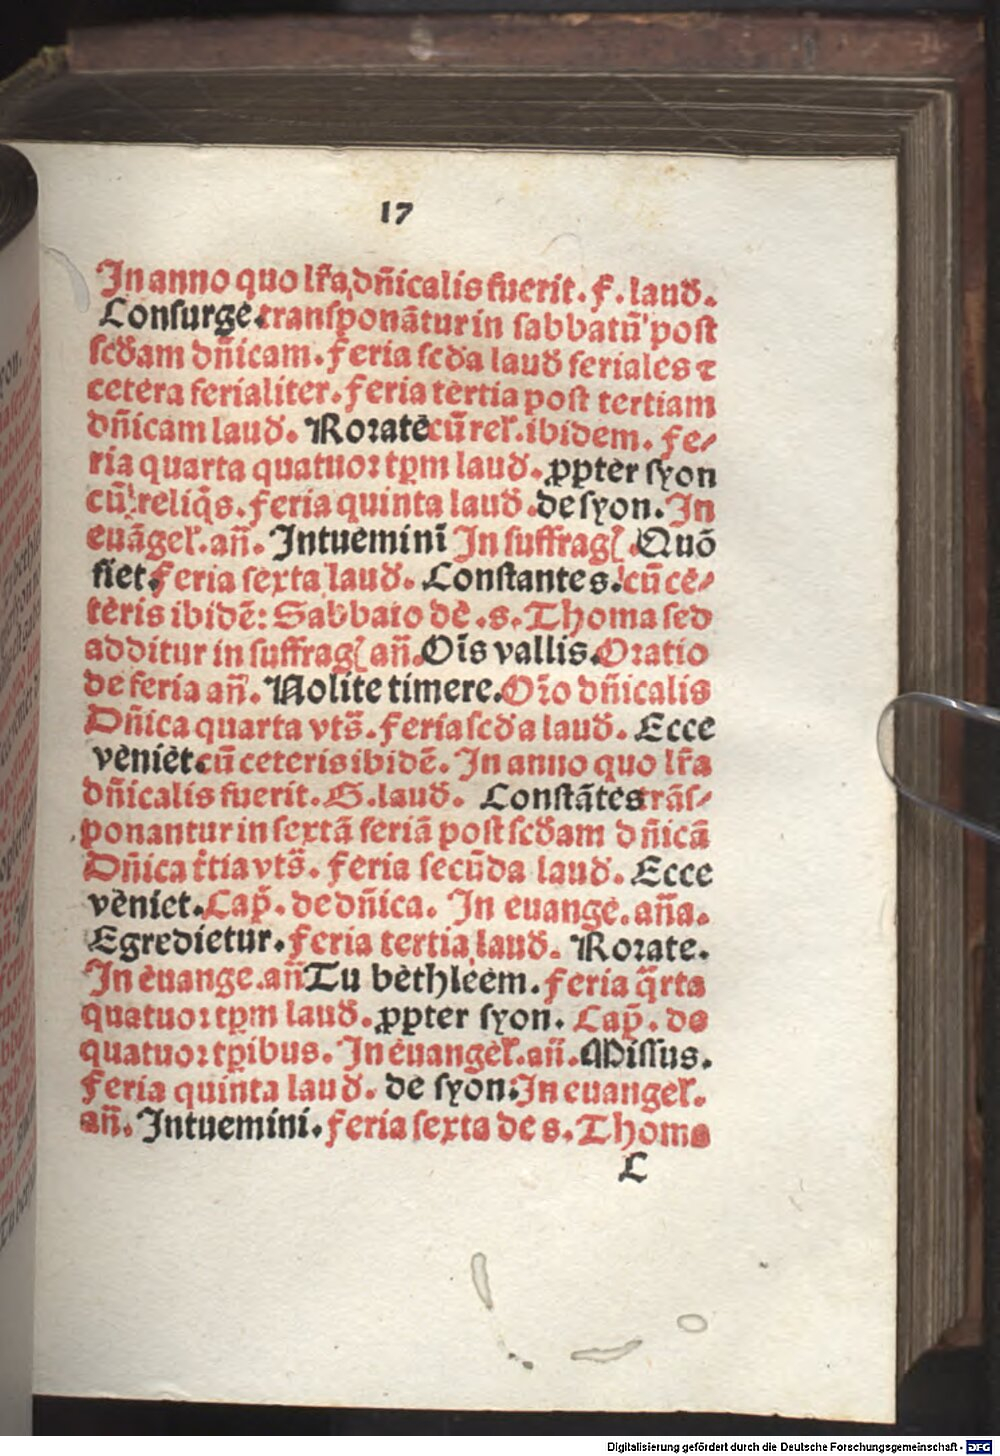 17
In anno quo lr̃a dñicalis fuerit. F. laud̕.
Conſurge. tranſponãtur in ſabbatũ poſt
ſcd̕am dñicam. Feria ſcd̕a laud̕ feriales ⁊
cetera ferialiter. Feria tertia poſt tertiam
dñicam laud̕. Roꝛate cũ rel̕. ibidem. Fe⸗
ria quarta quatuoꝛ tꝑm laud̕. ꝓpter ſyon
cũ reliq̃s. Feria quinta laud̕. de ſyon. In
euãgel̕. añ. Intuemini In ſuffrag̕ Quõ
fiet. Feria ſexta laud̕. Conſtantes. cũ ce⸗
teris ibidẽ: Sabbato de .s. Thoma ſed
additur in ſuffrag̕ añ. Oĩs vallis. Oꝛatio
de feria añ. Nolite timere. Oꝛ̃o dñicalis
Dñica quarta vts̃. Feria ſcd̕a laud̕. Ecce
veniet. cũ ceteris ibidẽ. In anno quo lr̃a
dñicalis fuerit. G. laud̕. Conſtãtes trãſ⸗
ponantur in ſextã feriã poſt ſcd̕am dñicã
Dñica t̃tia vts̃. Feria ſecũda laud̕. Ecce
veniet. Cap̕. de dñica. In euange. aña.
Egredietur. Feria tertia laud̕. Roꝛate.
In euange. añ Tu bethleem. Feria q̃rta
quatuoꝛ tꝑm laud̕. ꝓpter ſyon. Cap̕. de
quatuoꝛ tꝑibus. In euangel̕. añ. Miſſus.
Feria quinta laud̕. de ſyon. In euangel̕.
añ. Intuemini. Feria ſexta de s. Thoma
C
Digitalisierung gefördert durch die Deutsche Forschungsgemeinschaft - DFG